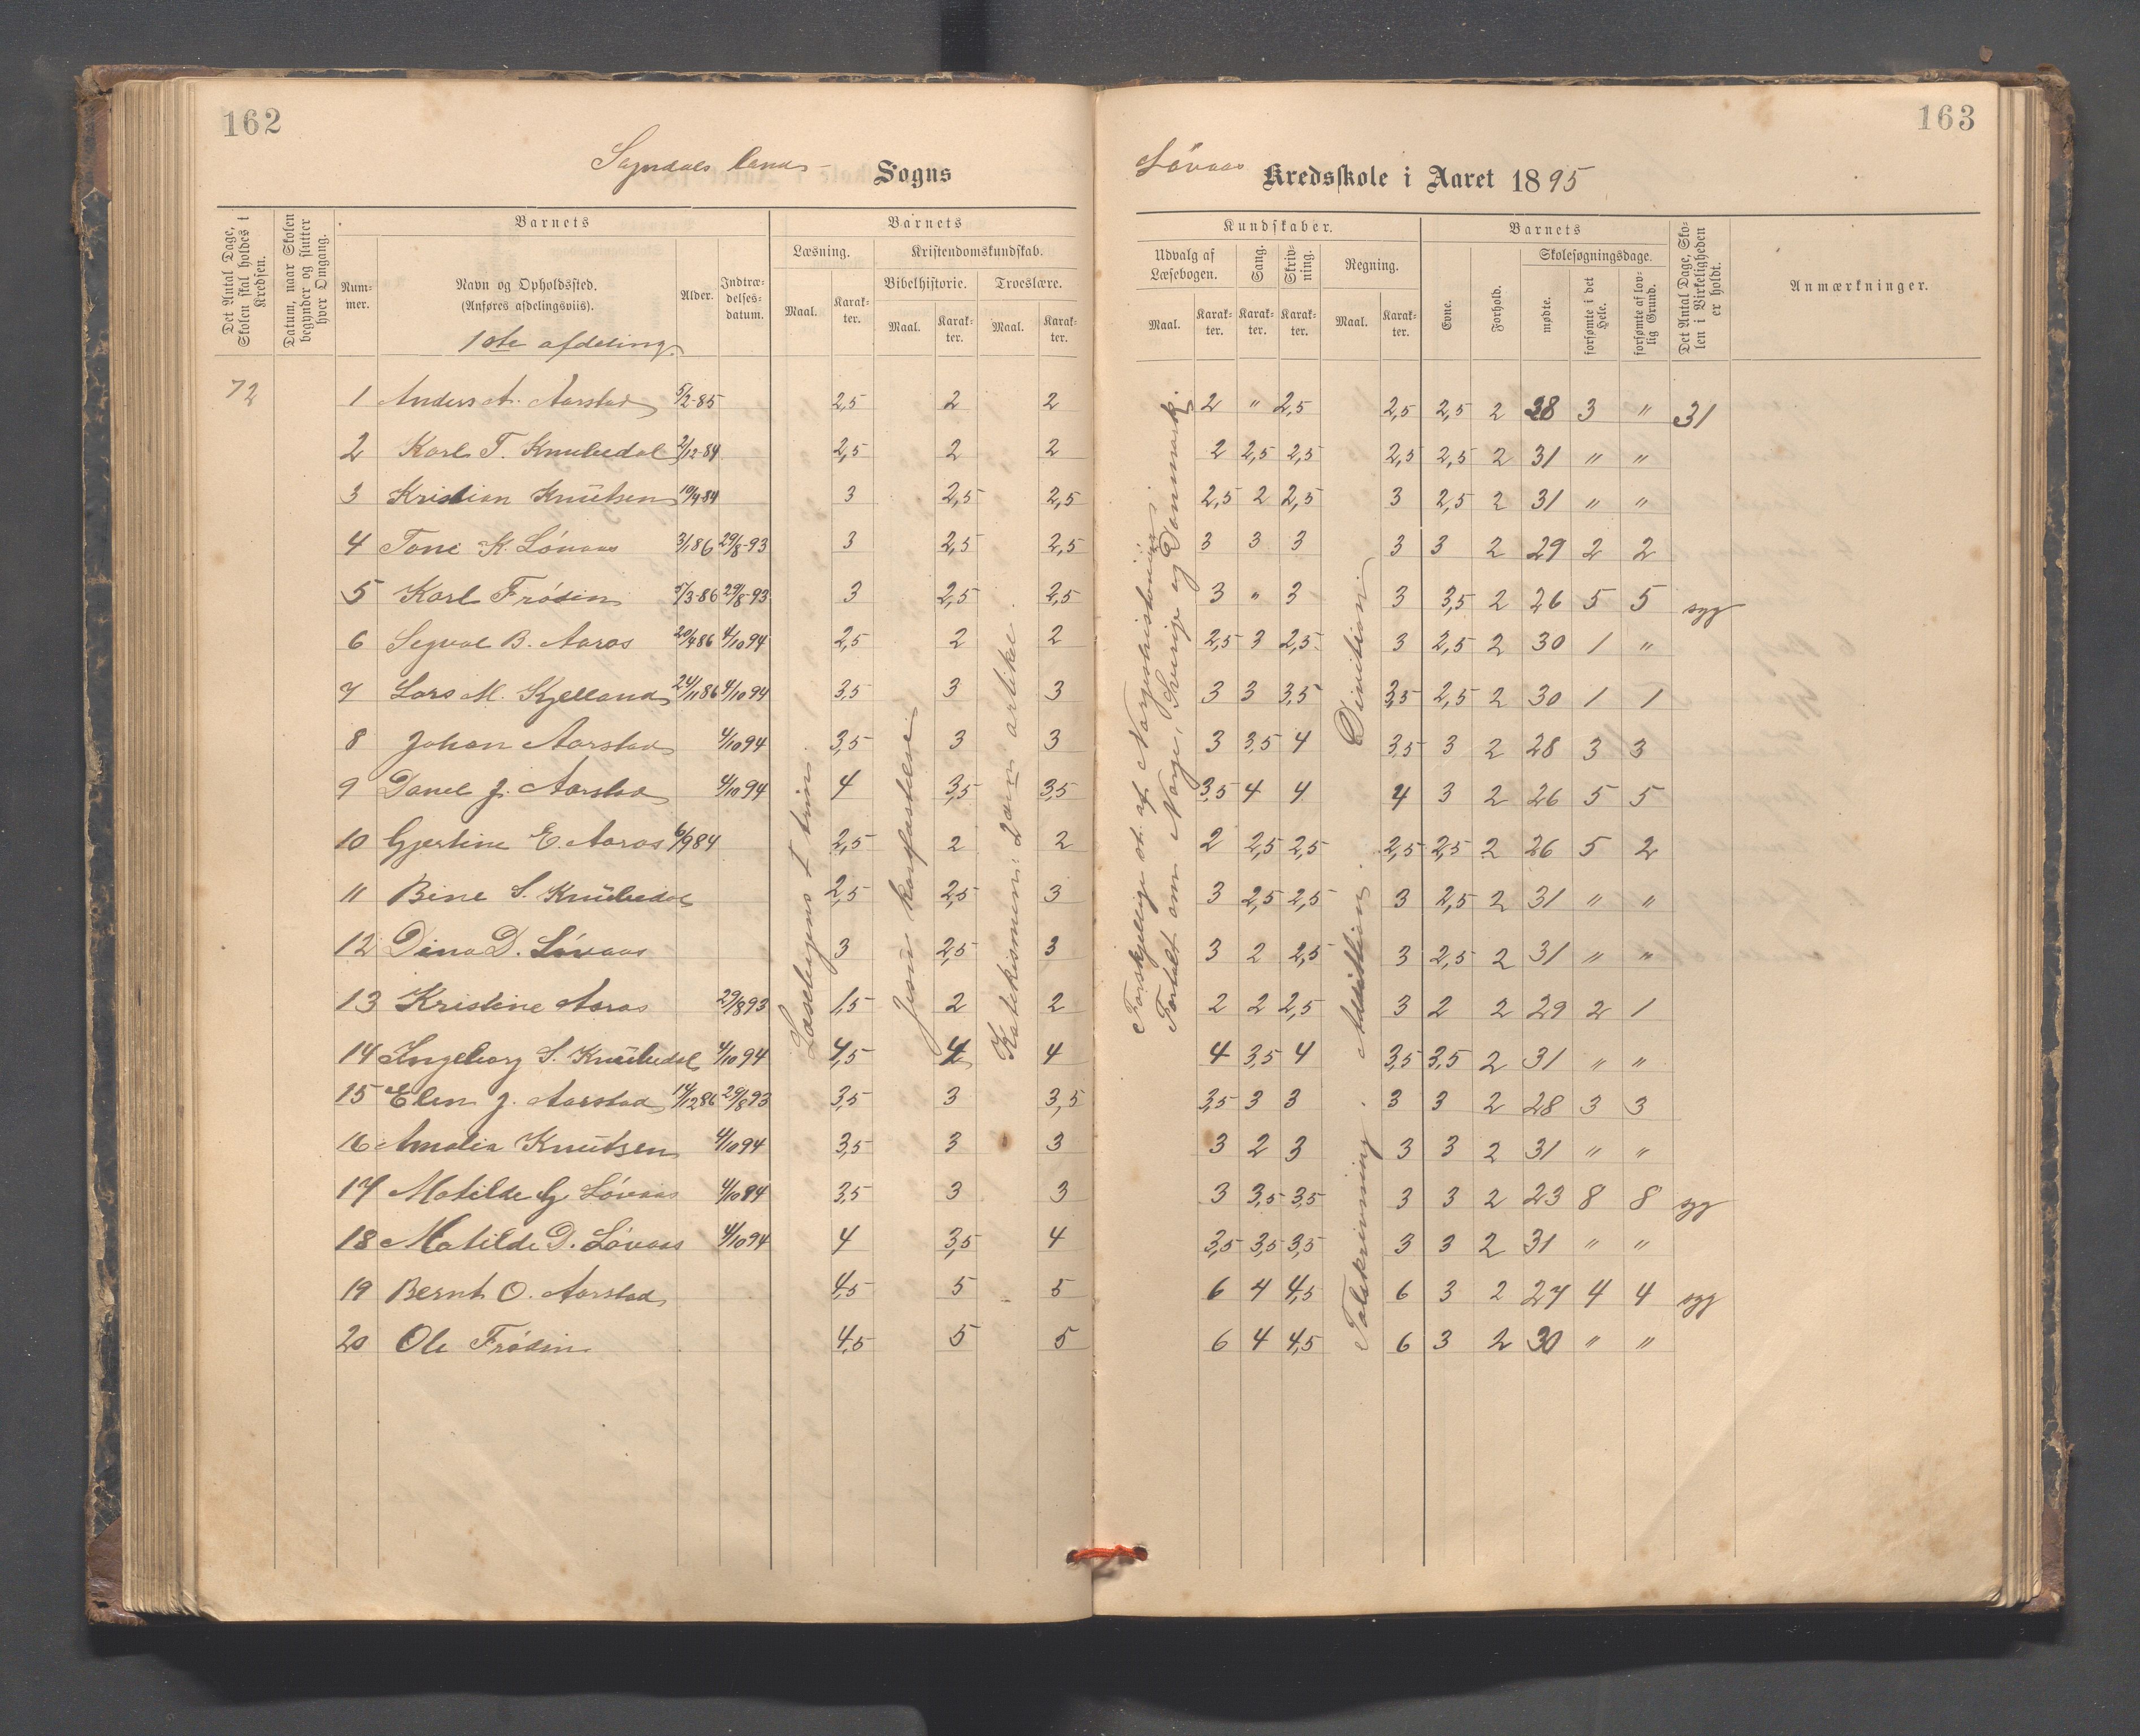 162
Sogndals lands Sogns
Det Antal Dage, Skolen skal holdes i Kredsen.
Datum, naar Skolen begynder og slutter hver Omgang.
Barnets
Barnets
Nummer.
Navn og Opholdssted.
(Anføres afdelingsviis).
1ste afdeling.
Alder.
Indtrædelses-datum.
Læsning.
Kristendomskundskab.
Bibelhistorie.
Troeslære.
Maal.
Karakter.
Maal.
Karakter.
Maal.
Karakter.
72
1 Anders A. Aarstad 5/2-85 2,5 2 2
2 Karl T. Knubedal 2/12-84 2,5 2 2
3 Kristian Knutsen 10/4-84 3 2,5 2,5
4 Toni K. Lóvaas 3/1 86 29/8-93 3 2,5 2,5
5 Karl Fródin 5/3-86 29/8-93 3 2,5 2,5
6 Segval B. Aaros 20/4 86 4/10 94 2,5 2 2
7 Lars M. Kjelland 24/11 86 4/10 94 3,5 3 3
8 Johan Aarstad 4/10 94 3,5 3 3
9 Danel J. Aarstad 4/10 94 4 3,5 3,5
10 Gjertine E. Aaros 6/9 84 2,5 2 2
11 Bine S. Knubedal 2,5 2,5 3
12 Dina D. Lóvaas 3 2,5 3
13 Kristine Aaros 29/8 93 1,5 2 2
14 Ingeborg S. Knubedal 4/10 94 4,5 4 4
15 Elen J. Aarstad 14/12 86 29/8 93 3,5 3 3,5
16 Amalia Knutsen 4/10 94 3,5 3 3
17 Matilde G Lóvaas 4/10 94 3,5 3 3
18 Matilde D. Lóvaas 4/10 94 4 3,5 4
19 Bernt O. Aarstad 4,5 5 5
20 Ole Fródin 4,5 5 5
Læsebogens I trin.
Jesu korsfæstelse
Katekismen: 2den artikel.
163
Lóvaas Kredsskole i Aaret 1895
Kundskaber.
Barnets
Udvalg af Læsebogen.
Sang.
Skrivning.
Regning.
Evne.
Forhold.
Skolesøgningsdage.
mødte.
forsømte i det Hele.
forsømte af lovlig Grund.
Det Antal Dage, Skolen i Virkeligheden er holdt.
Anmærkninger.
Maal.
Karakter.
Karakter.
Karakter.
Maal.
Karakter.
2 " 2,5 2,5 2,5 2 28 3 " 31
2 2,5 2,5 2,5 2,5 2 31 " "
2,5 2 2,5 3 2,5 2 31 " "
3 3 3 3 3 2 29 2 2
3 " 3 3 3,5 2 26 5 5 syg
2,5 3 2,5 3 2,5 2 30 1 "
3 3 3,5 3,5 2,5 2 30 1 1
3 3,5 4 3,5 3 2 28 3 3
3,5 4 4 4 3 2 26 5 5
2 2,5 2,5 2,5 2,5 2 26 5 2
3 2,5 2,5 3 2,5 2 31 " "
3 2 2,5 3 2,5 2 31 " "
2 2 2,5 3 2 2 29 2 1
4 3,5 4 3,5 3,5 2 31 " "
3,5 3 3 3 3 2 28 3 3
3 2 3 3 3 2 31 " "
3 3,5 3,5 3 3 2 23 8 8 syg
3,5 3,5 3,5 3 3 2 31 " "
6 4 4,5 6 3 2 27 4 4 syg
6 4 4,5 6 3 2 30 " "
Forskjellige st. af Norgeshistorien.
Fortalt om Norge, Sverige og Danmark.
Talskrivning. Addition. Division